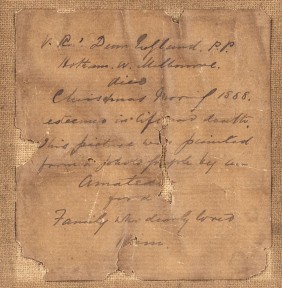 V. Rd. Dean England, P.P.
Hotham, W. Melbourne.
died
Christmas Morng 1888.
esteemed in life and death.
This picture was painted
from a photograph by an
Amateur
for a
Family who dearly loved
him